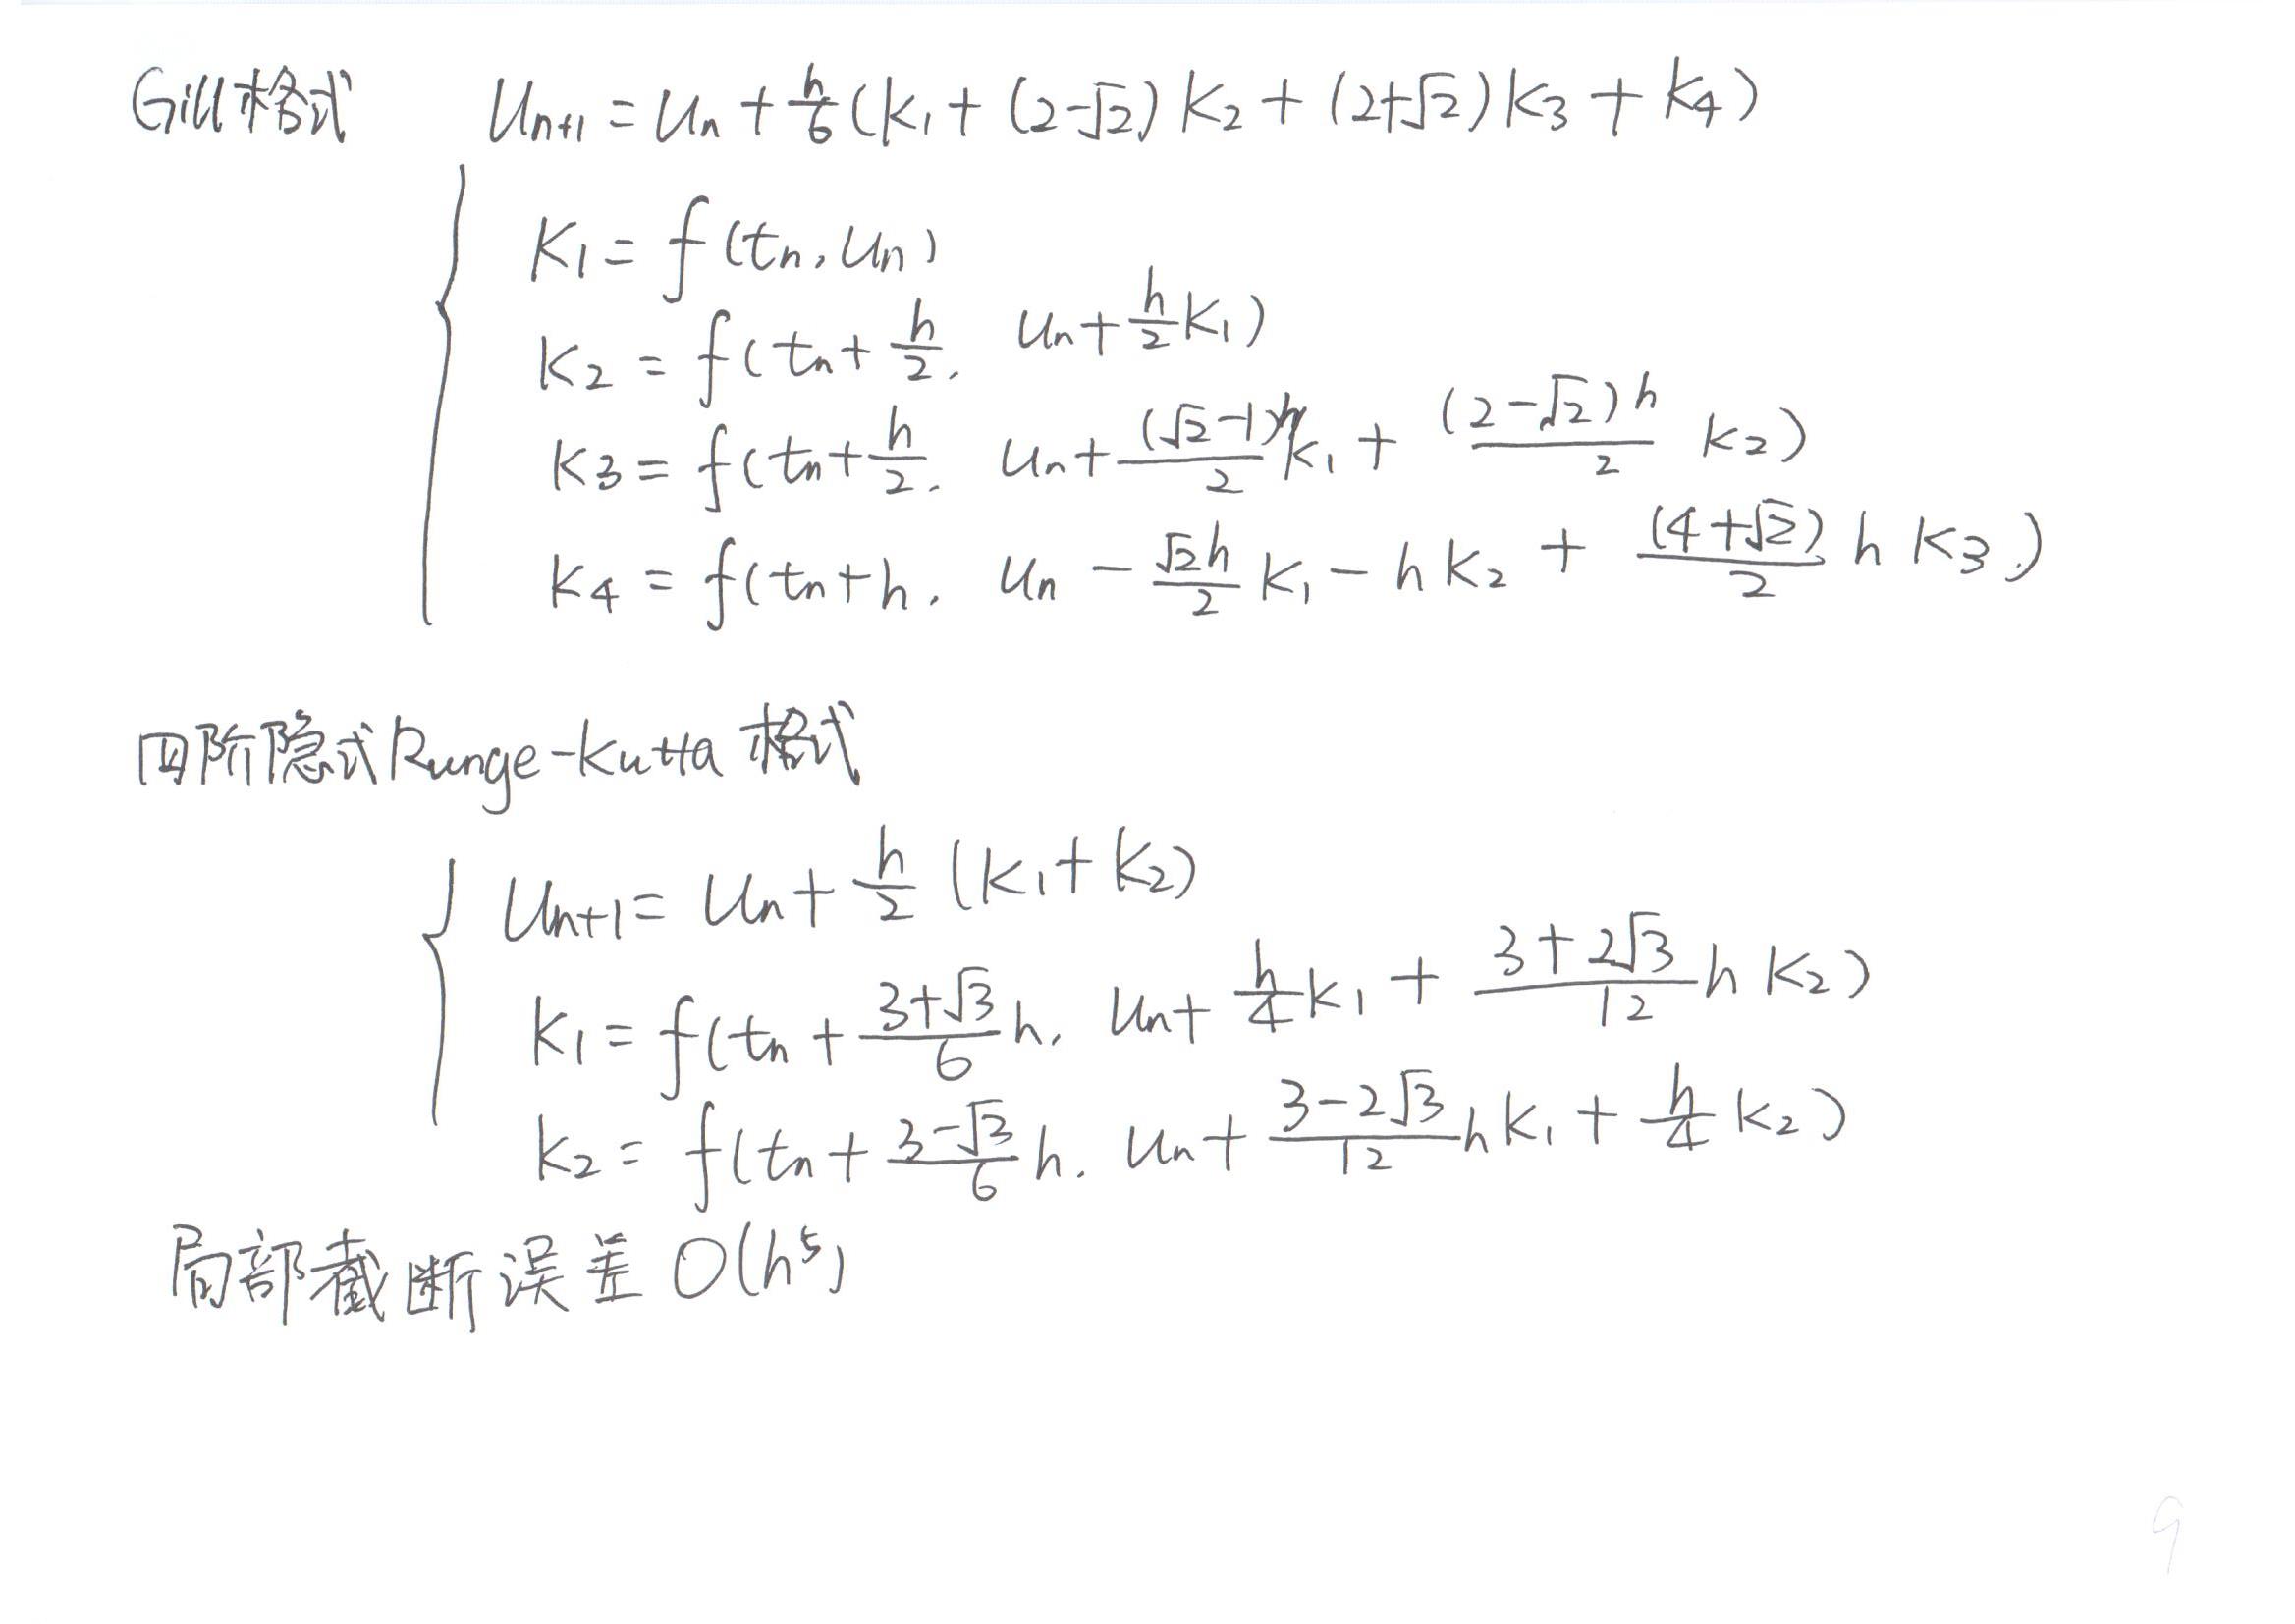 Gill格式 Un+1 = Un + h/6 (K1 + (2-√2) K2 + (2+√2) K3 + K4)
K1 = f(tn, Un)
K2 = f(tn + h/2, Un + h/2 K1)
K3 = f(tn + h/2, Un + (√2-1)h/2 K1 + (2-√2)h/2 K2)
K4 = f(tn+h, Un - √2h/2 K1 - hK2 + (4+√2)/2 h K3)
四阶隐式Runge-Kutta格式
Un+1 = Un + h/2 (K1 + K2)
K1 = f(tn + 3+√3/6 h, Un + h/4 K1 + 3+2√3/12 h K2)
K2 = f(tn + 3-√3/6 h, Un + 3-2√3/12 h K1 + h/4 K2)
局部截断误差 O(h⁵)
9